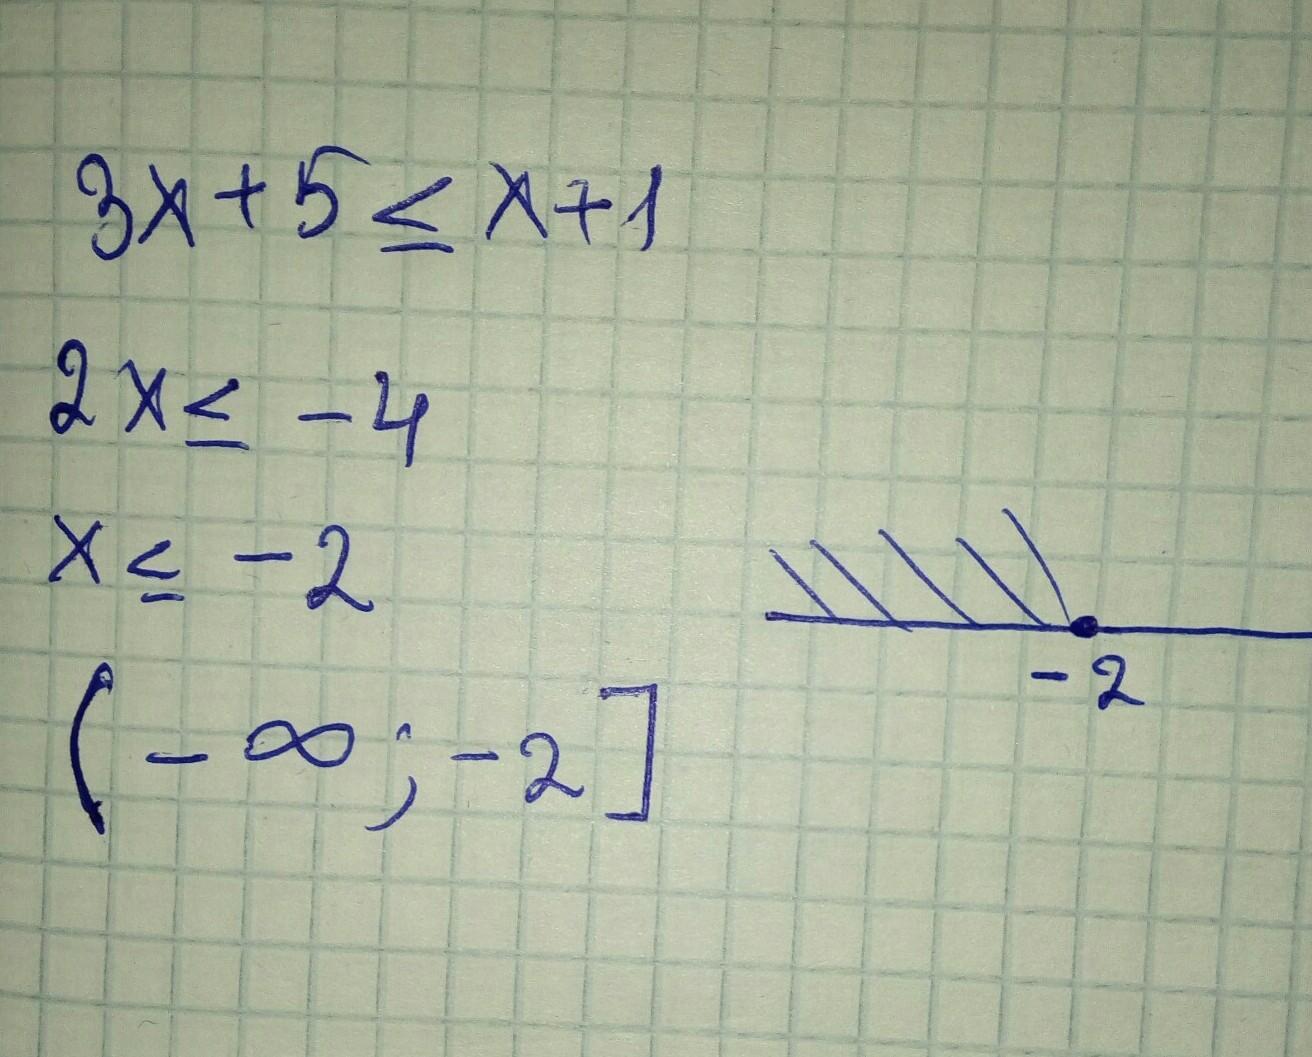 3x+5≤x+1
2x≤ -4
x≤ -2
-2
(-∞;-2]